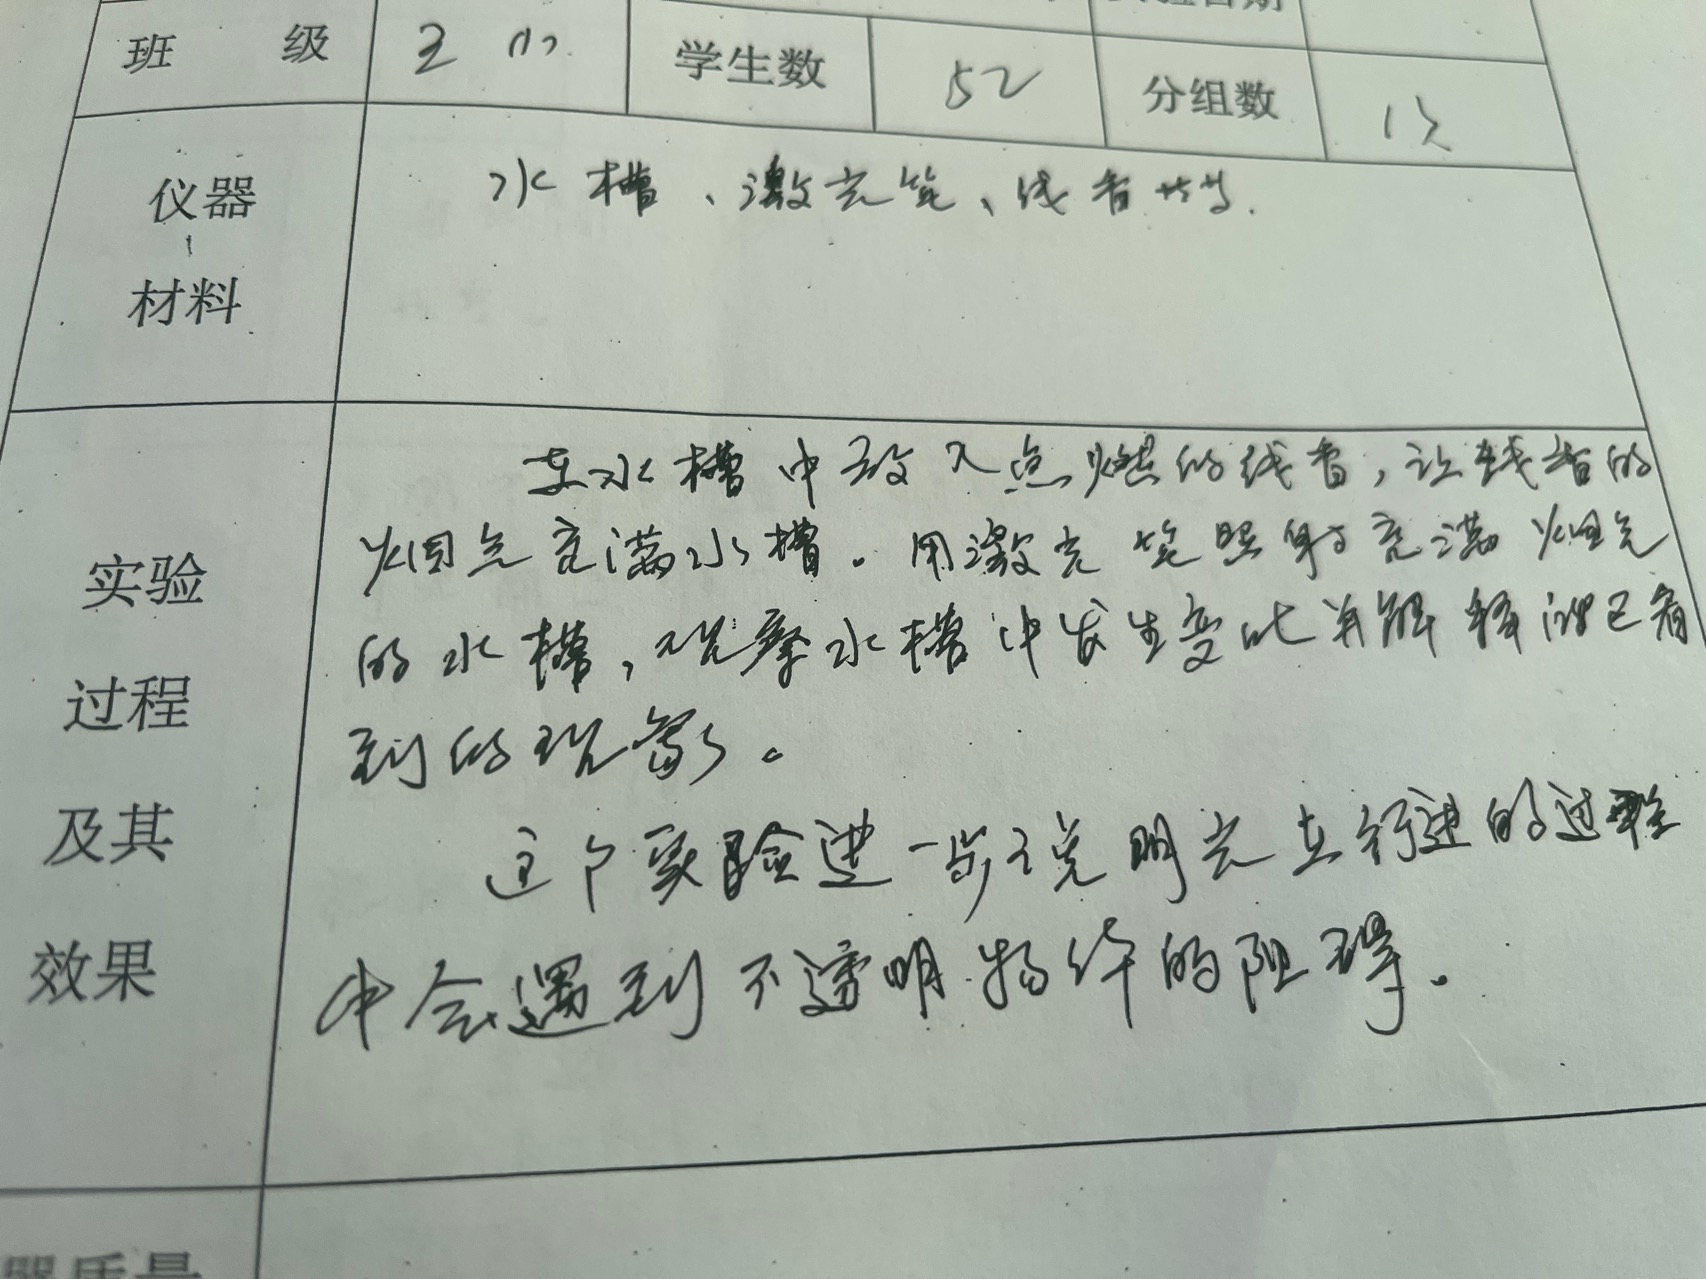 班 级 五 (1) 学生数 52 分组数 12
仪器 材料
水槽、激光笔、线香等.
实验 过程 及其 效果
在水槽中放入点燃的线香,让线香的
烟气充满水槽。用激光笔照射充满烟气
的水槽,观察水槽中发生变化并解释自己看
到的现象。
这个实验进一步说明光在行进的过程
中会遇到不透明物体的阻碍.
器质量